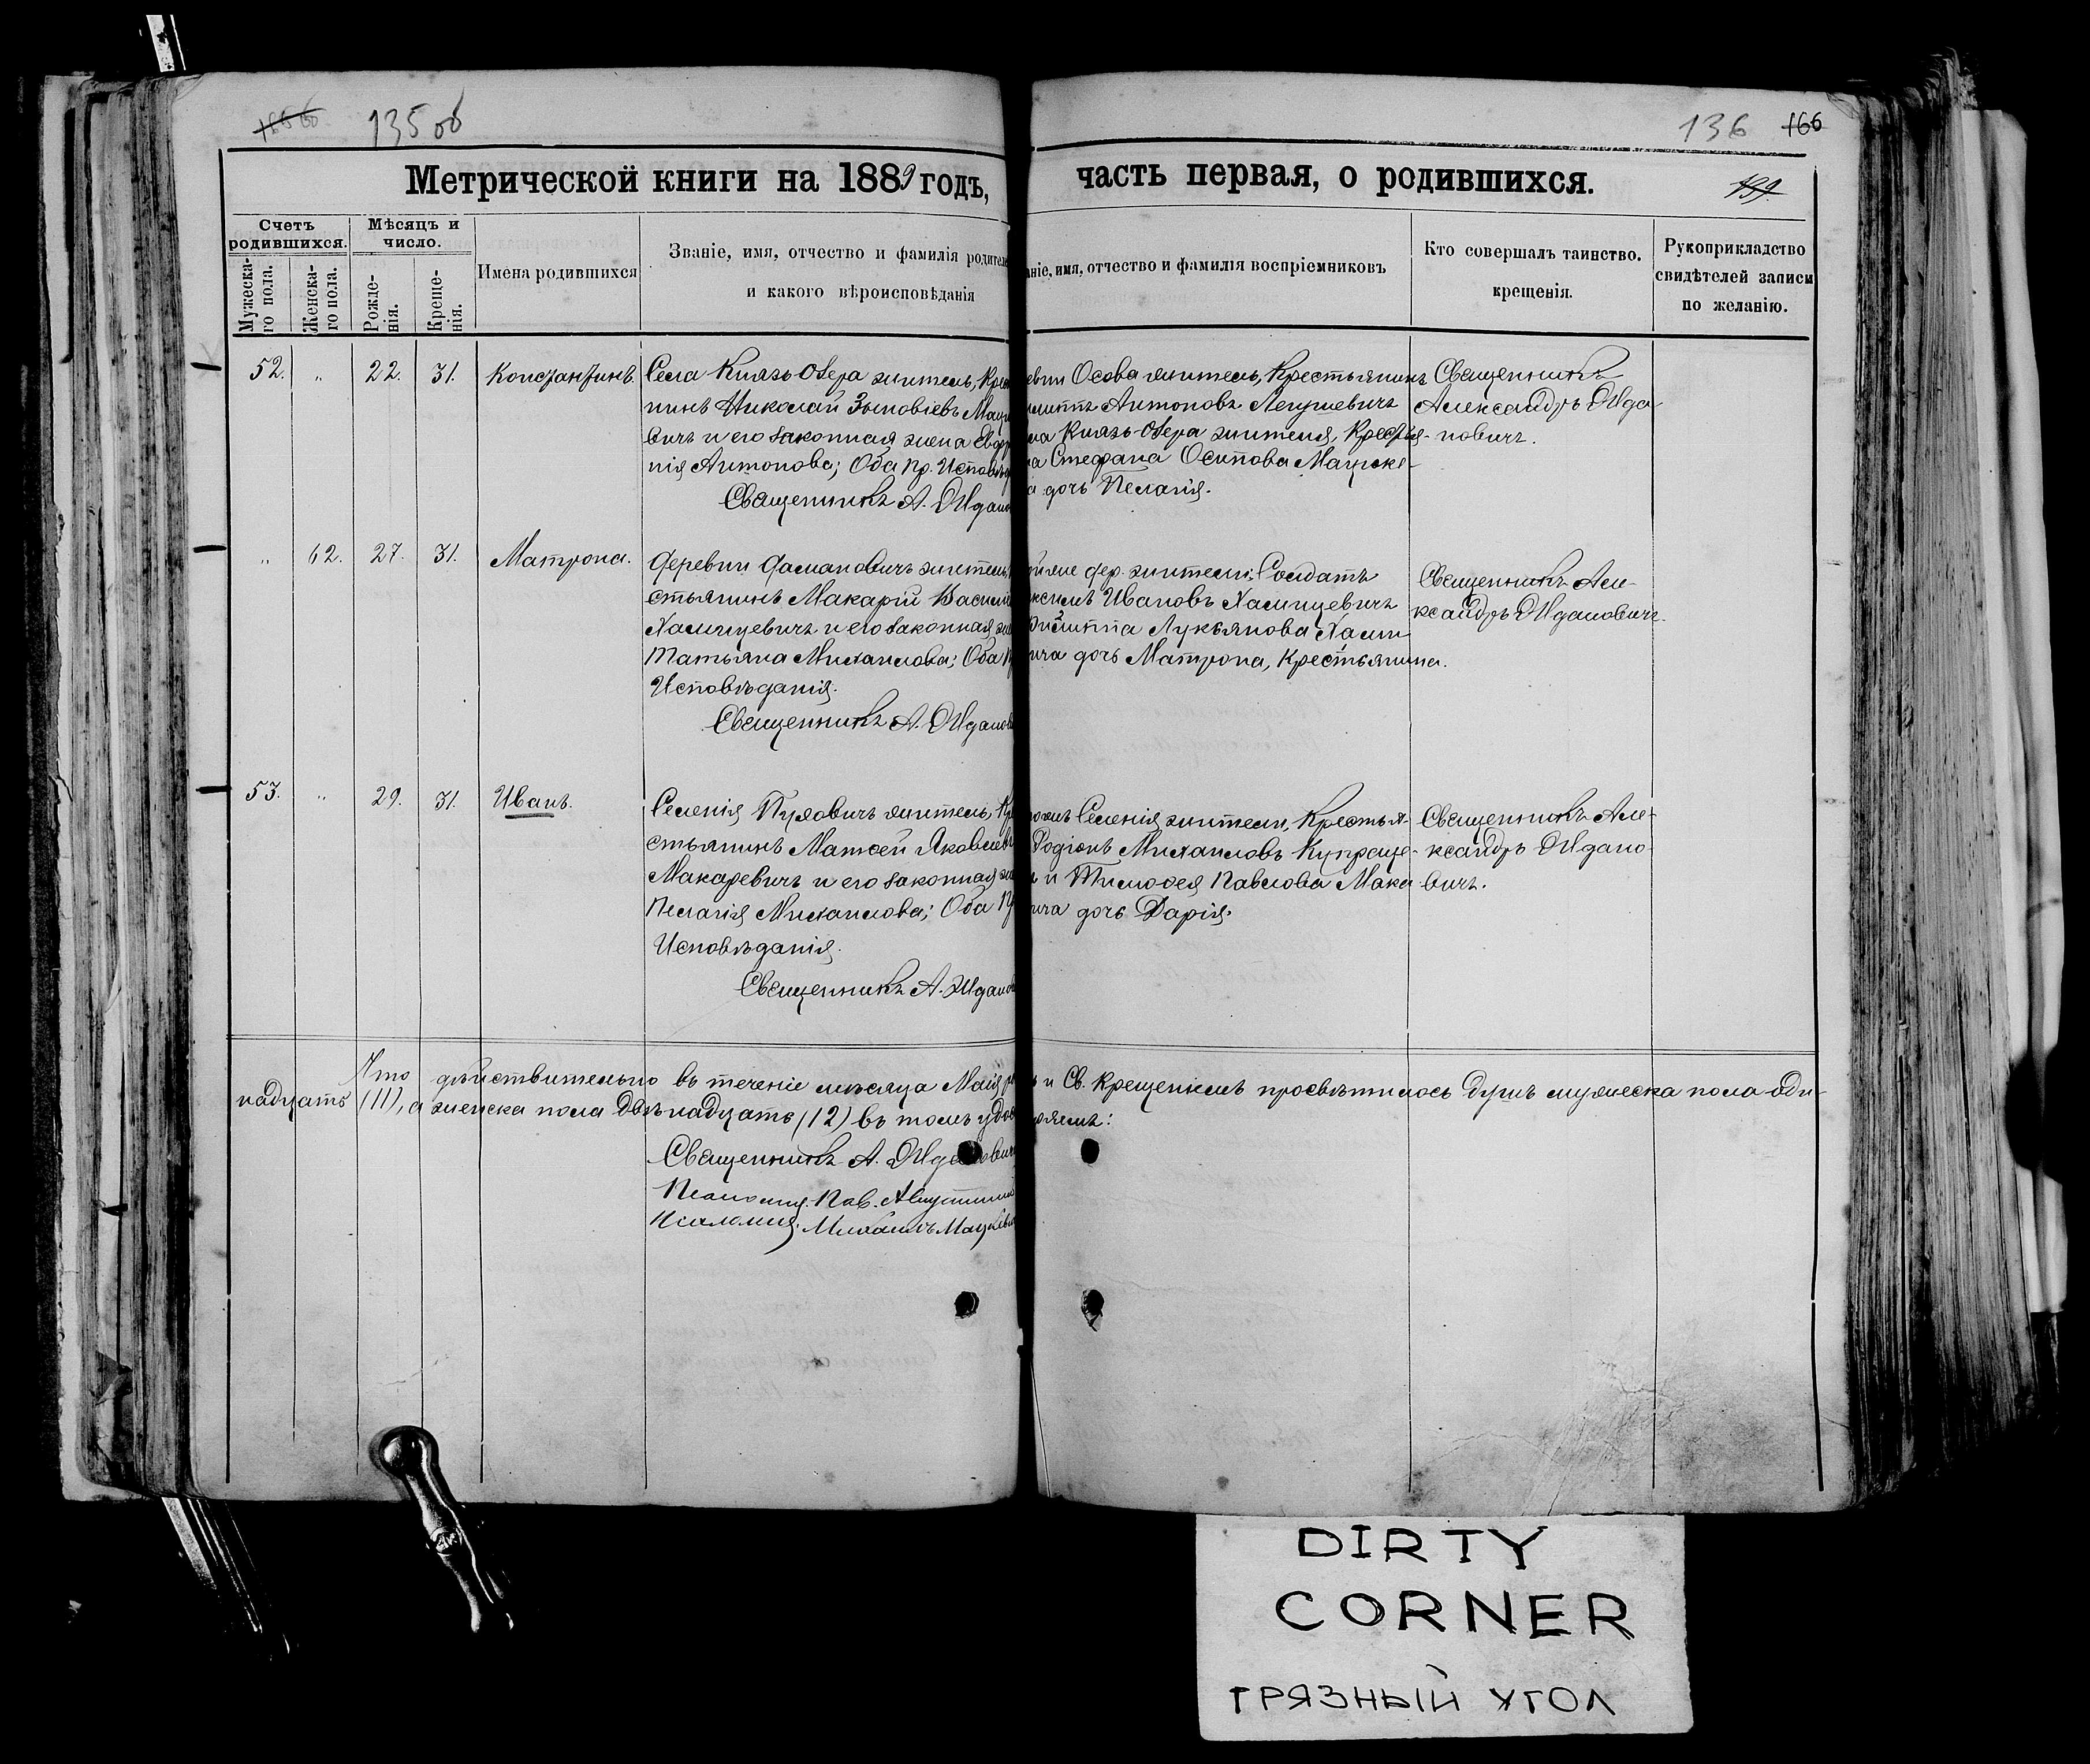 135 об
136 166
Метрической книги на 1889 годъ, часть первая, о родившихся.
139.
Счетъ родившихся.
Мужеска-
го пола.
Женска-
го пола.
Мѣсяцъ и число.
Рожде-
нія.
Креще-
нія.
Имена родившихся
Званіе, имя, отчество и фамилія родителе
и какого вѣроисповѣданія
ніе, имя, отчество и фамилія воспріемниковъ
Кто совершалъ таинство.
крещенія.
Рукоприкладство
свидѣтелей записи
по желанію.
52. " 22. 31. Константинъ.
Села Князь-Озера житель, Крест
нинъ Николай Зиновіевъ Мацке
вичъ и его законная жена Евдо
нія Антонова; Оба пр. Исповѣд
Священникъ А. Ждано
евни Осова житель, Крестьянинъ
липпъ Антоновъ Легушевичъ
ла Князь-Озера жителя, Крестья-
на Стефана Осипова Мацке-
а дочь Пелагія.
Священникъ
Александръ Жда-
новичъ.
" 62. 27. 31. Матрона.
Деревни Даманович житель,
стьянинъ Макарій Васил
Халицевичъ и его законная же
Татьяна Михаилова; Оба п
Исповѣданія.
Священникъ А. Жданов
ойже дер. жители: Солдатъ
ксимъ Ивановъ Халицевичъ
Филиппа Лукьянова Хали
вича дочь Матрона, Крестьянина.
Священникъ Але-
ксандръ Ждановичъ.
53. " 29. 31. Иванъ.
Селенія Пузовичъ житель, Кр
стьянинъ Матѳей Яковлев
Макаревичъ и его законная же
Пелагія Михаилова; Оба Пр
Исповѣданія.
Священникъ А. Жданов
огожъ Селенія жители, Крестья-
Родіонъ Михаиловъ Купраце-
ъ и Тимоѳея Павлова Мака
вича дочь Дарія.
Священникъ Але-
ксандръ Ждано-
вичъ.
Что дѣйствительно въ теченіе мѣсяца Маія р ъ и Св. Крещеніемъ просвѣтилось душъ мужеска пола оди-
надцать (11), а женска пола двѣнадцать (12) въ томъ удов оряемъ:
Священникъ А. Ждановичъ
Псаломщ. Пав. Августин
Псаломщ. Михаилъ Мацкеви
DIRTY
CORNER
ГРЯЗНЫЙ УГОЛ